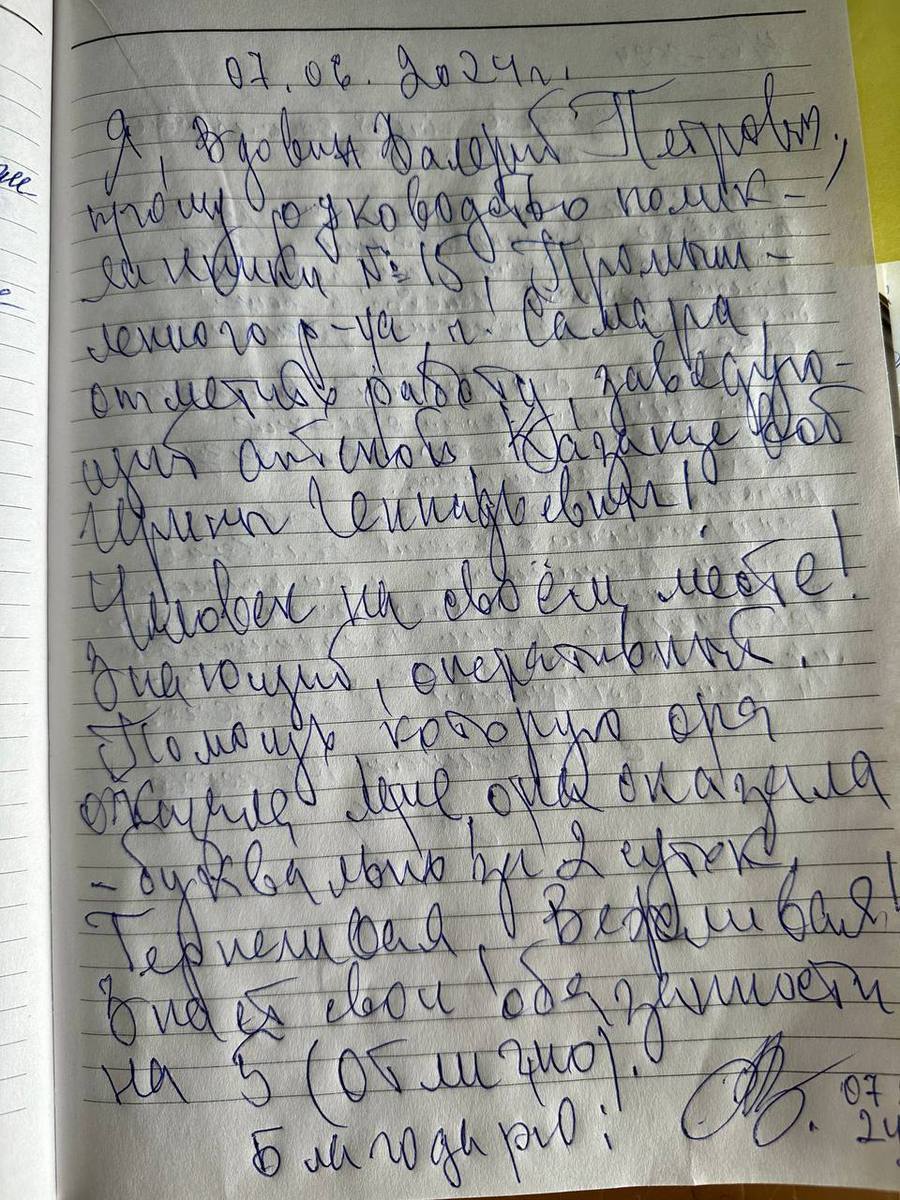 07.06.2024г.
Я, Вдовин Валерий Петрович,
прошу руководство полик-
линики №15, Промыш-
ленного р-на, г. Самара,
отметить работу, заведую-
щей
Ирины Геннадьевны!
Человек на своём месте!
Знающий, оперативный.
Помощь, которую она
оказала мне, она оказала
- буквально за 2 суток.
Терпеливая, Вежливая!
Знает свои обязанности
на 5 (отлично).
Благодарю!
07
24